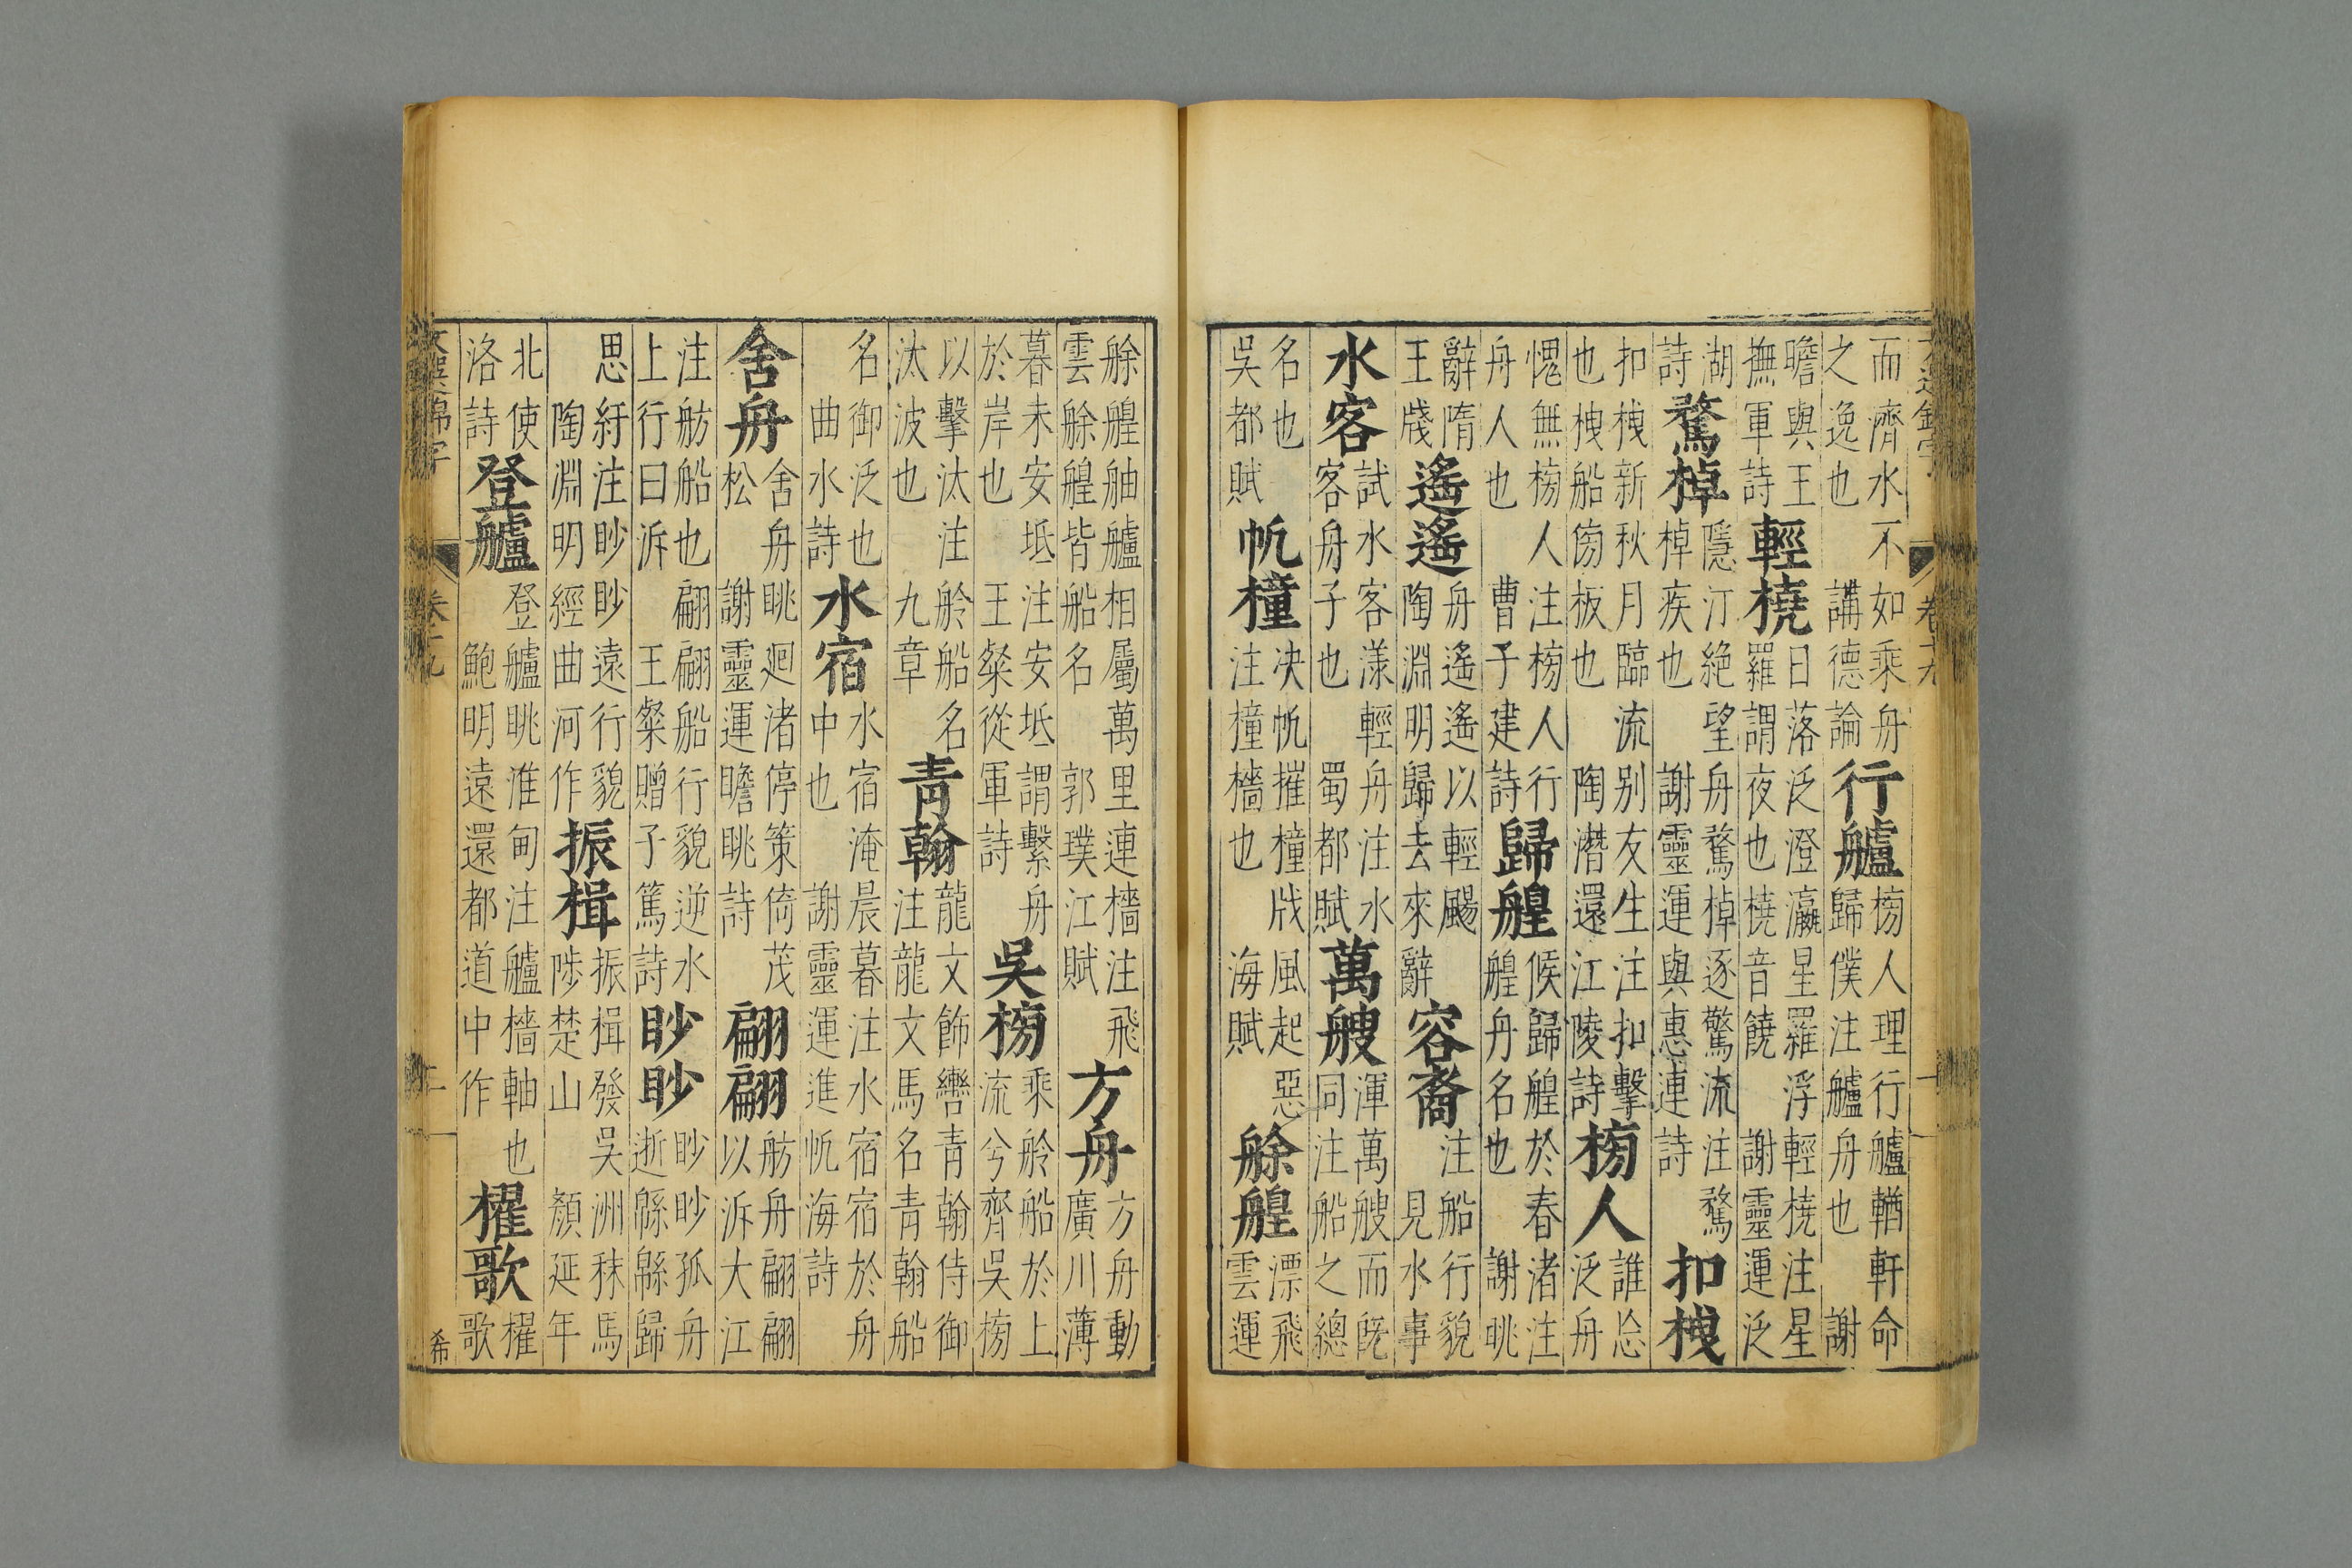 而濟水不如乘舟之逸也 講德論 行艫 榜人理行艫輶軒命歸僕注艫舟也 謝
瞻與王撫軍詩 輕橈 日落泛澄瀛星羅浮輕橈注星羅謂夜也橈音饒 謝靈運泛
湖詩 騖棹 隱汀絕望舟騖棹逐驚流注騖棹疾也 謝靈運與惠連詩 扣栧
扣栧新秋月臨流别友生注扣擊也栧船傍板也 陶潛還江陵詩 榜人 誰忩泛舟
愧無榜人注榜人行舟人也 曹子建詩 歸艎 候歸艎於春渚注艎舟名也 謝眺
辭隋王牋 遙遙 舟遙遙以輕颺 陶淵明歸去來辭 容裔 注船行貌 見水事
水客 試水客漾輕舟注水客舟子也 蜀都賦 萬艘 渾萬艘而旣同注船之總
名也 吳都賦 帆橦 决帆摧橦戕風起惡注橦檣也 海賦 艅艎 漂飛雲運
艅艎舳艫相屬萬里連檣注飛雲艅艎皆船名 郭璞江賦 方舟 方舟動廣川薄
暮未安坻注安坻謂繫舟於岸也 王粲從軍詩 吳榜 乘舲船於上流兮齊吳榜
以擊汰注舲船名汰波也 九章 青翰 龍文飾轡青翰侍御注龍文馬名青翰船
名御泛也 曲水詩 水宿 水宿淹晨暮注水宿宿於舟中也 謝靈運進帆海詩
舍舟 舍舟眺迴渚停策倚茂松 謝靈運瞻眺詩 翩翩 舫舟翩翩以泝大江
注舫船也翩翩船行貌逆水上行曰泝 王粲贈子篤詩 眇眇 眇眇孤舟逝緜緜歸
思紆注眇眇遠行貌 陶淵明經曲河作 振楫 振楫發吳洲秣馬陟楚山 顏延年
北使洛詩 登艫 登艫眺淮甸注艫檣軸也 鮑明遠還都道中作 櫂歌 櫂歌
希